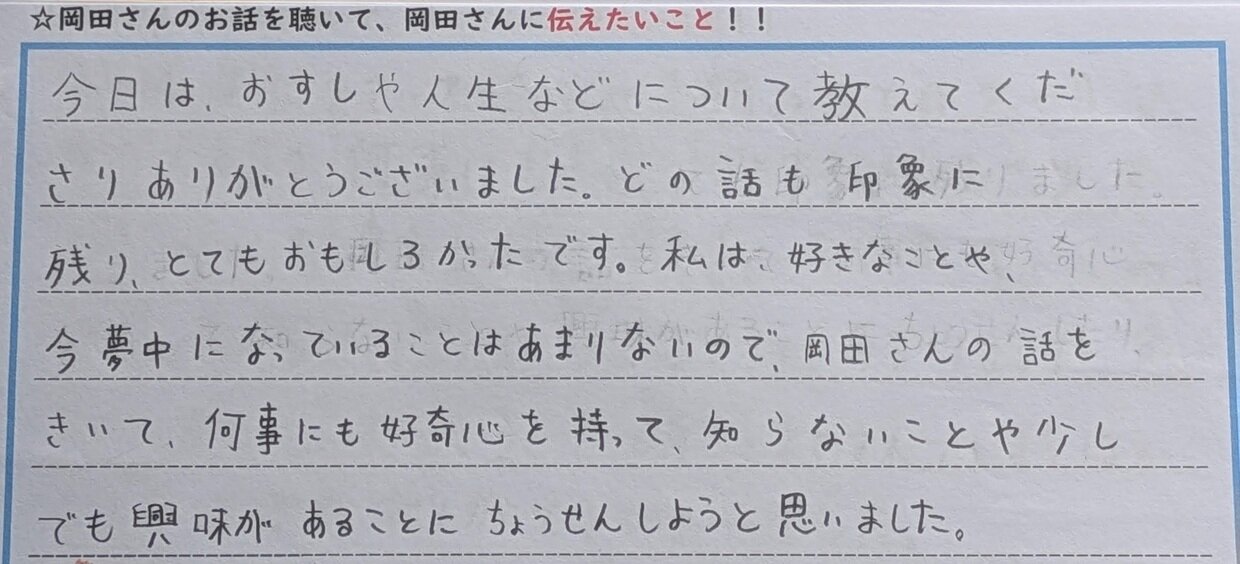 ☆岡田さんのお話を聴いて、岡田さんに伝えたいこと！！
今日は、おすしや人生などについて教えてくだ
さりありがとうございました。どの話も印象に
残り、とてもおもしろかったです。私は、好きなことや、
今夢中になっていることはあまりないので、岡田さんの話を
きいて、何事にも好奇心を持って、知らないことや少し
でも興味があることにちょうせんしようと思いました。